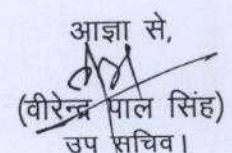 आज्ञा से,
(वीरेन्द्र पाल सिंह)
उप सचिव।